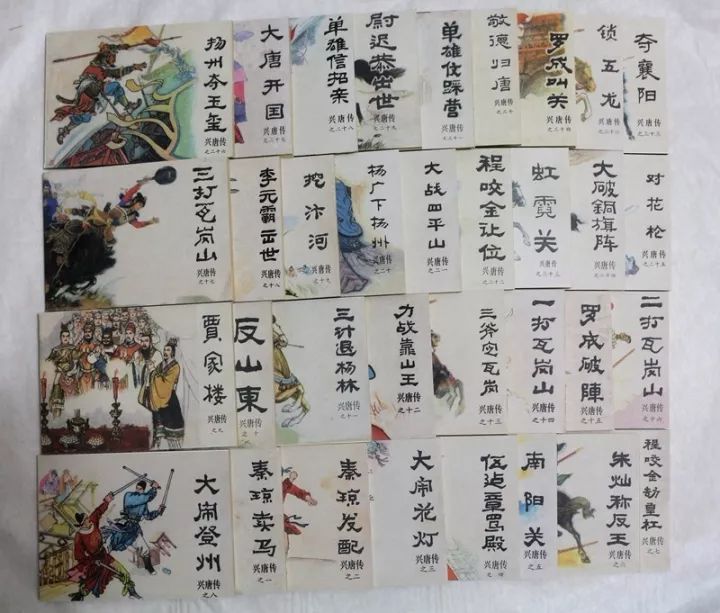 扬州夺玉玺
兴唐传
之二十六
大唐开国
兴唐传
之二十七
单雄信招亲
兴唐传
之二十八
尉迟恭出世
兴唐传
之二十九
单雄信踩营
兴唐传
敬德归唐
兴唐传
罗成叫关
兴唐传
锁五龙
兴唐传
夺襄阳
兴唐传
之三十三
三打瓦岗山
兴唐传
之十七
李元霸出世
兴唐传
之十八
挖汴河
兴唐传
之十九
杨广下扬州
兴唐传
之二十
大战四平山
兴唐传
之二一
程咬金让位
兴唐传
之二十二
虹霓关
兴唐传
之二十三
大破銅旗阵
兴唐传
之二十四
对花枪
兴唐传
之二十五
賈家楼
兴唐传
之九
反山東
兴唐传
之十
三计退杨林
兴唐传
之十一
力战靠山王
兴唐传
之十二
三斧定瓦岗
兴唐传
之十三
一打瓦岗山
兴唐传
之十四
罗成破陣
兴唐传
之十五
二打瓦岗山
兴唐传
之十六
大闹登州
兴唐传
之八
秦琼卖马
兴唐传
之一
秦琼发配
兴唐传
之二
大闹花灯
兴唐传
之三
伍建章骂殿
兴唐传
之四
南阳关
兴唐传
之五
朱灿称反王
兴唐传
之六
程咬金劫皇杠
兴唐传
之七